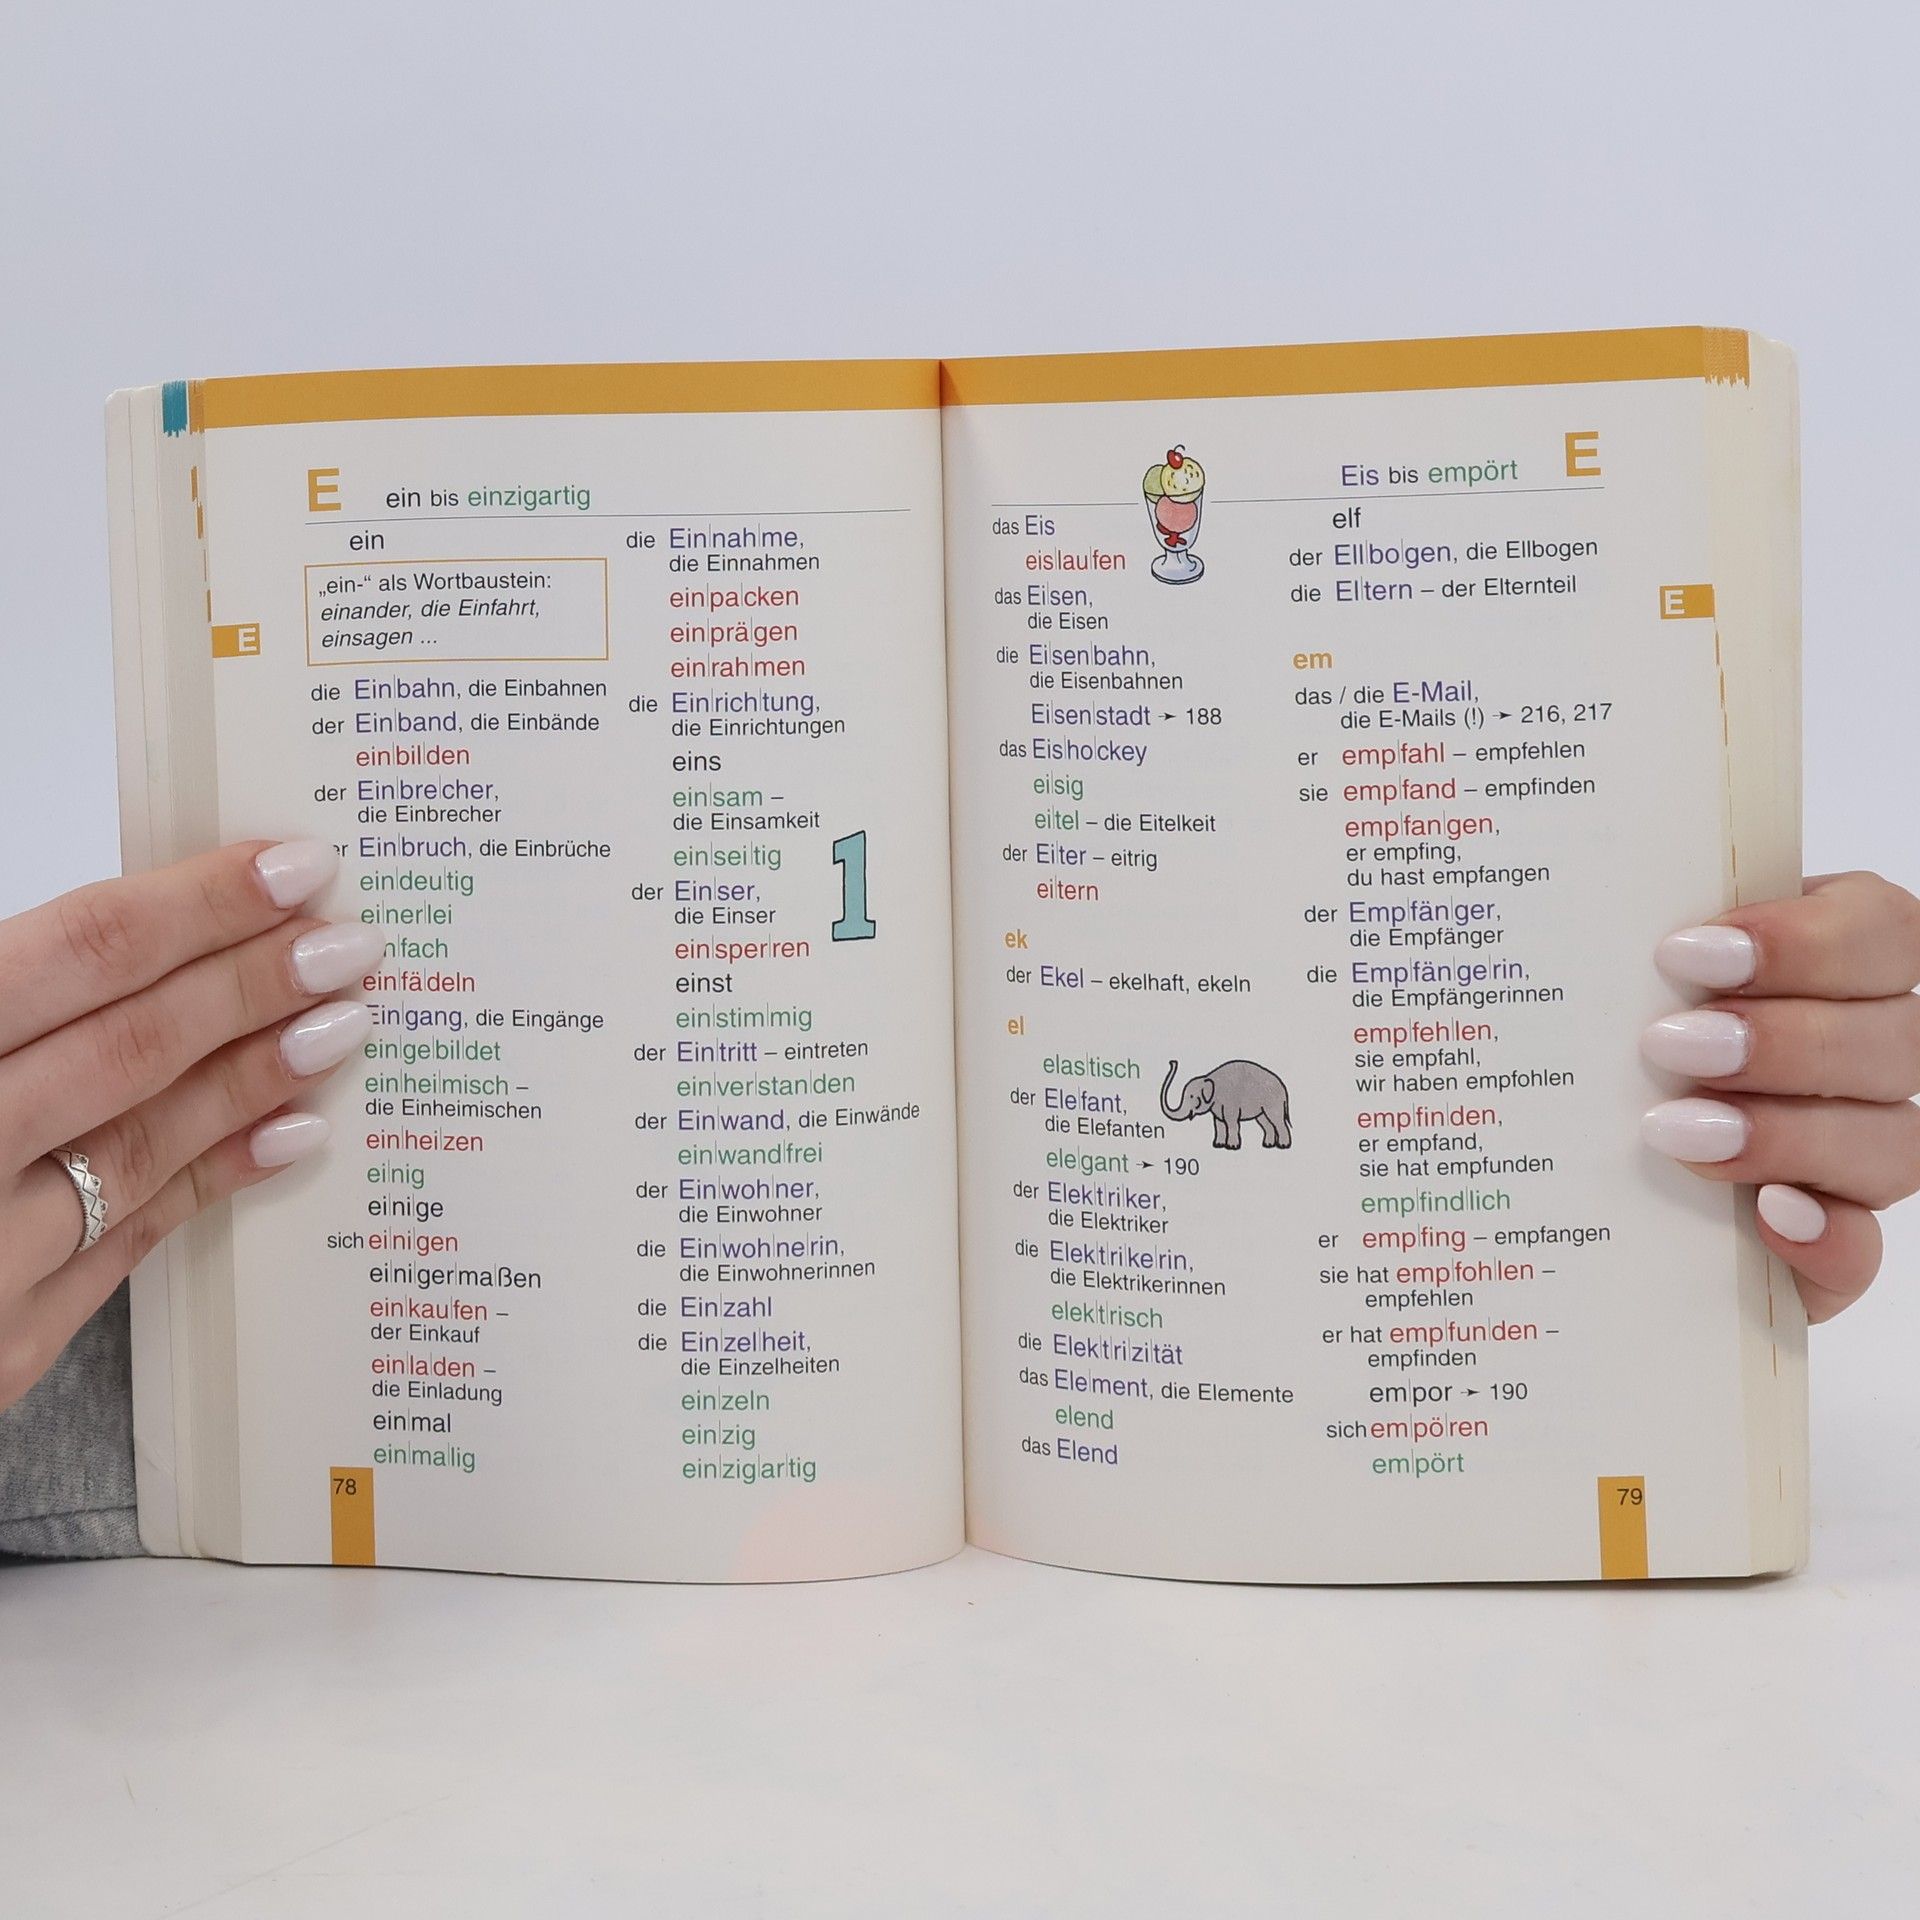 E ein bis einzigartig
ein
„ein-“ als Wortbaustein:
einander, die Einfahrt,
einsagen ...
E
die Ein|bahn, die Einbahnen
der Ein|band, die Einbände
ein|bil|den
der Ein|bre|cher,
die Einbrecher
Ein|bruch, die Einbrüche
ein|deu|tig
ei|ner|lei
fach
ein|fä|deln
Ein|gang, die Eingänge
ein|ge|bil|det
ein|hei|misch –
die Einheimischen
ein|hei|zen
ei|nig
ei|ni|ge
sich ei|ni|gen
ei|ni|ger|ma|ßen
ein|kau|fen –
der Einkauf
ein|la|den –
die Einladung
ein|mal
ein|ma|lig
78
die Ein|nah|me,
die Einnahmen
ein|pa|cken
ein|prä|gen
ein|rah|men
die Ein|rich|tung,
die Einrichtungen
eins
ein|sam –
die Einsamkeit
ein|sei|tig
der Ein|ser,
die Einser
1
ein|sper|ren
einst
ein|stim|mig
der Ein|tritt – eintreten
ein|ver|stan|den
der Ein|wand, die Einwände
ein|wand|frei
der Ein|woh|ner,
die Einwohner
die Ein|woh|ne|rin,
die Einwohnerinnen
die Ein|zahl
die Ein|zel|heit,
die Einzelheiten
ein|zeln
ein|zig
ein|zig|ar|tig
Eis bis empört E
das Eis
eis|lau|fen
das Ei|sen,
die Eisen
die Ei|sen|bahn,
die Eisenbahnen
Ei|sen|stadt ➛ 188
das Eis|ho|ckey
ei|sig
ei|tel – die Eitelkeit
der Ei|ter – eitrig
ei|tern
ek
der Ekel – ekelhaft, ekeln
el
elas|tisch
der Ele|fant,
die Elefanten
ele|gant ➛ 190
der Elek|t|ri|ker,
die Elektriker
die Elek|t|ri|ke|rin,
die Elektrikerinnen
elek|t|risch
die Elek|t|ri|zi|tät
das Ele|ment, die Elemente
elend
das Elend
elf
der Ell|bo|gen, die Ellbogen
die El|tern – der Elternteil
E
em
das / die E-Mail,
die E-Mails (!) ➛ 216, 217
er emp|fahl – empfehlen
sie emp|fand – empfinden
emp|fan|gen,
er empfing,
du hast empfangen
der Emp|fän|ger,
die Empfänger
die Emp|fän|ge|rin,
die Empfängerinnen
emp|feh|len,
sie empfahl,
wir haben empfohlen
emp|fin|den,
er empfand,
sie hat empfunden
emp|find|lich
er emp|fing – empfangen
sie hat emp|foh|len –
empfehlen
er hat emp|fun|den –
empfinden
em|por ➛ 190
sich em|pö|ren
em|pört
79